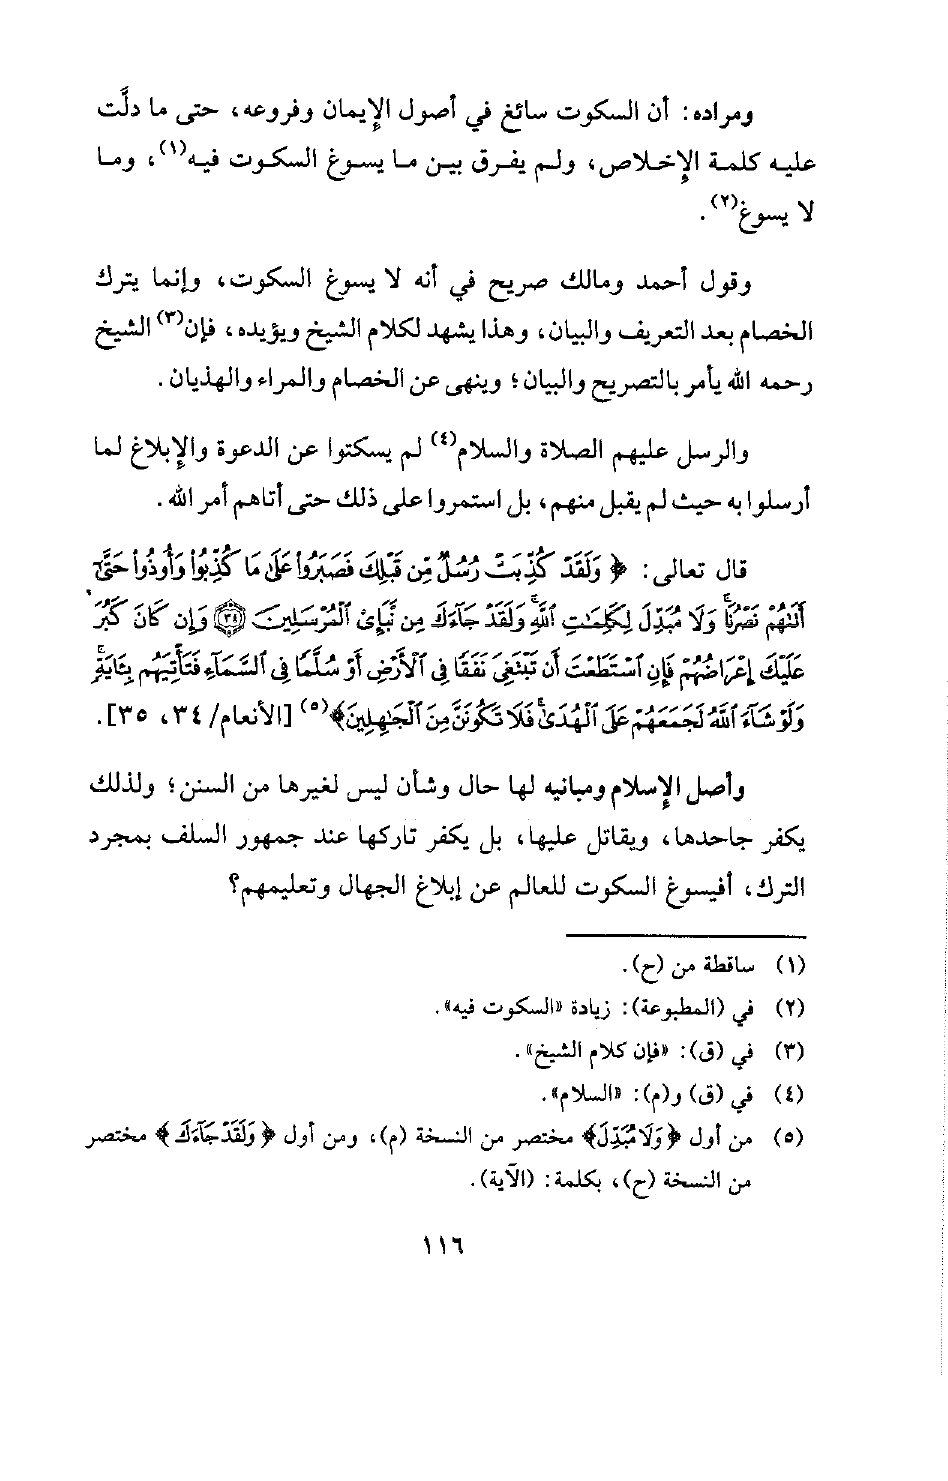 ومراده: أن السكوت سائغ في أصول الإيمان وفروعه، حتى ما دلَّت
عليه كلمة الإخلاص، ولم يفرق بين ما يسوغ السكوت فيه(١)، وما
لا يسوغ(٢).
وقول أحمد ومالك صريح في أنه لا يسوغ السكوت، وإنما يترك
الخصام بعد التعريف والبيان، وهذا يشهد لكلام الشيخ ويؤيده، فإن(٣) الشيخ
رحمه الله يأمر بالتصريح والبيان؛ وينهى عن الخصام والمراء والهذيان.
والرسل عليهم الصلاة والسلام(٤) لم يسكتوا عن الدعوة والإبلاغ لما
أرسلوا به حيث لم يقبل منهم، بل استمروا على ذلك حتى أتاهم أمر الله.
قال تعالى: ﴿ وَلَقَدْ كُذِّبَتْ رُسُلٌ مِّن قَبْلِكَ فَصَبَرُوا۟ عَلَىٰ مَا كُذِّبُوا۟ وَأُوذُوا۟ حَتَّىٰٓ
أَتَىٰهُمْ نَصْرُنَا ۚ وَلَا مُبَدِّلَ لِكَلِمَـٰتِ ٱللَّهِ ۚ وَلَقَدْ جَآءَكَ مِن نَّبَإِى۟ ٱلْمُرْسَلِينَ ۝٣٤ وَإِن كَانَ كَبُرَ
عَلَيْكَ إِعْرَاضُهُمْ فَإِنِ ٱسْتَطَعْتَ أَن تَبْتَغِىَ نَفَقًا فِى ٱلْأَرْضِ أَوْ سُلَّمًا فِى ٱلسَّمَآءِ فَتَأْتِيَهُم بِـَٔايَةٍ ۚ
وَلَوْ شَآءَ ٱللَّهُ لَجَمَعَهُمْ عَلَى ٱلْهُدَىٰ ۚ فَلَا تَكُونَنَّ مِنَ ٱلْجَـٰهِلِينَ﴾(٥) [الأنعام/ ٣٤، ٣٥].
وأصل الإسلام ومبانيه لها حال وشأن ليس لغيرها من السنن؛ ولذلك
يكفر جاحدها، ويقاتل عليها، بل يكفر تاركها عند جمهور السلف بمجرد
الترك، أفيسوغ السكوت للعالم عن إبلاغ الجهال وتعليمهم؟
(١) ساقطة من (ح).
(٢) في (المطبوعة): زيادة «السكوت فيه».
(٣) في (ق): «فإن كلام الشيخ».
(٤) في (ق) و(م): «السلام».
(٥) من أول ﴿وَلَا مُبَدِّلَ﴾ مختصر من النسخة (م)، ومن أول ﴿وَلَقَدْ جَآءَكَ﴾ مختصر
من النسخة (ح)، بكلمة: (الآية).
١١٦